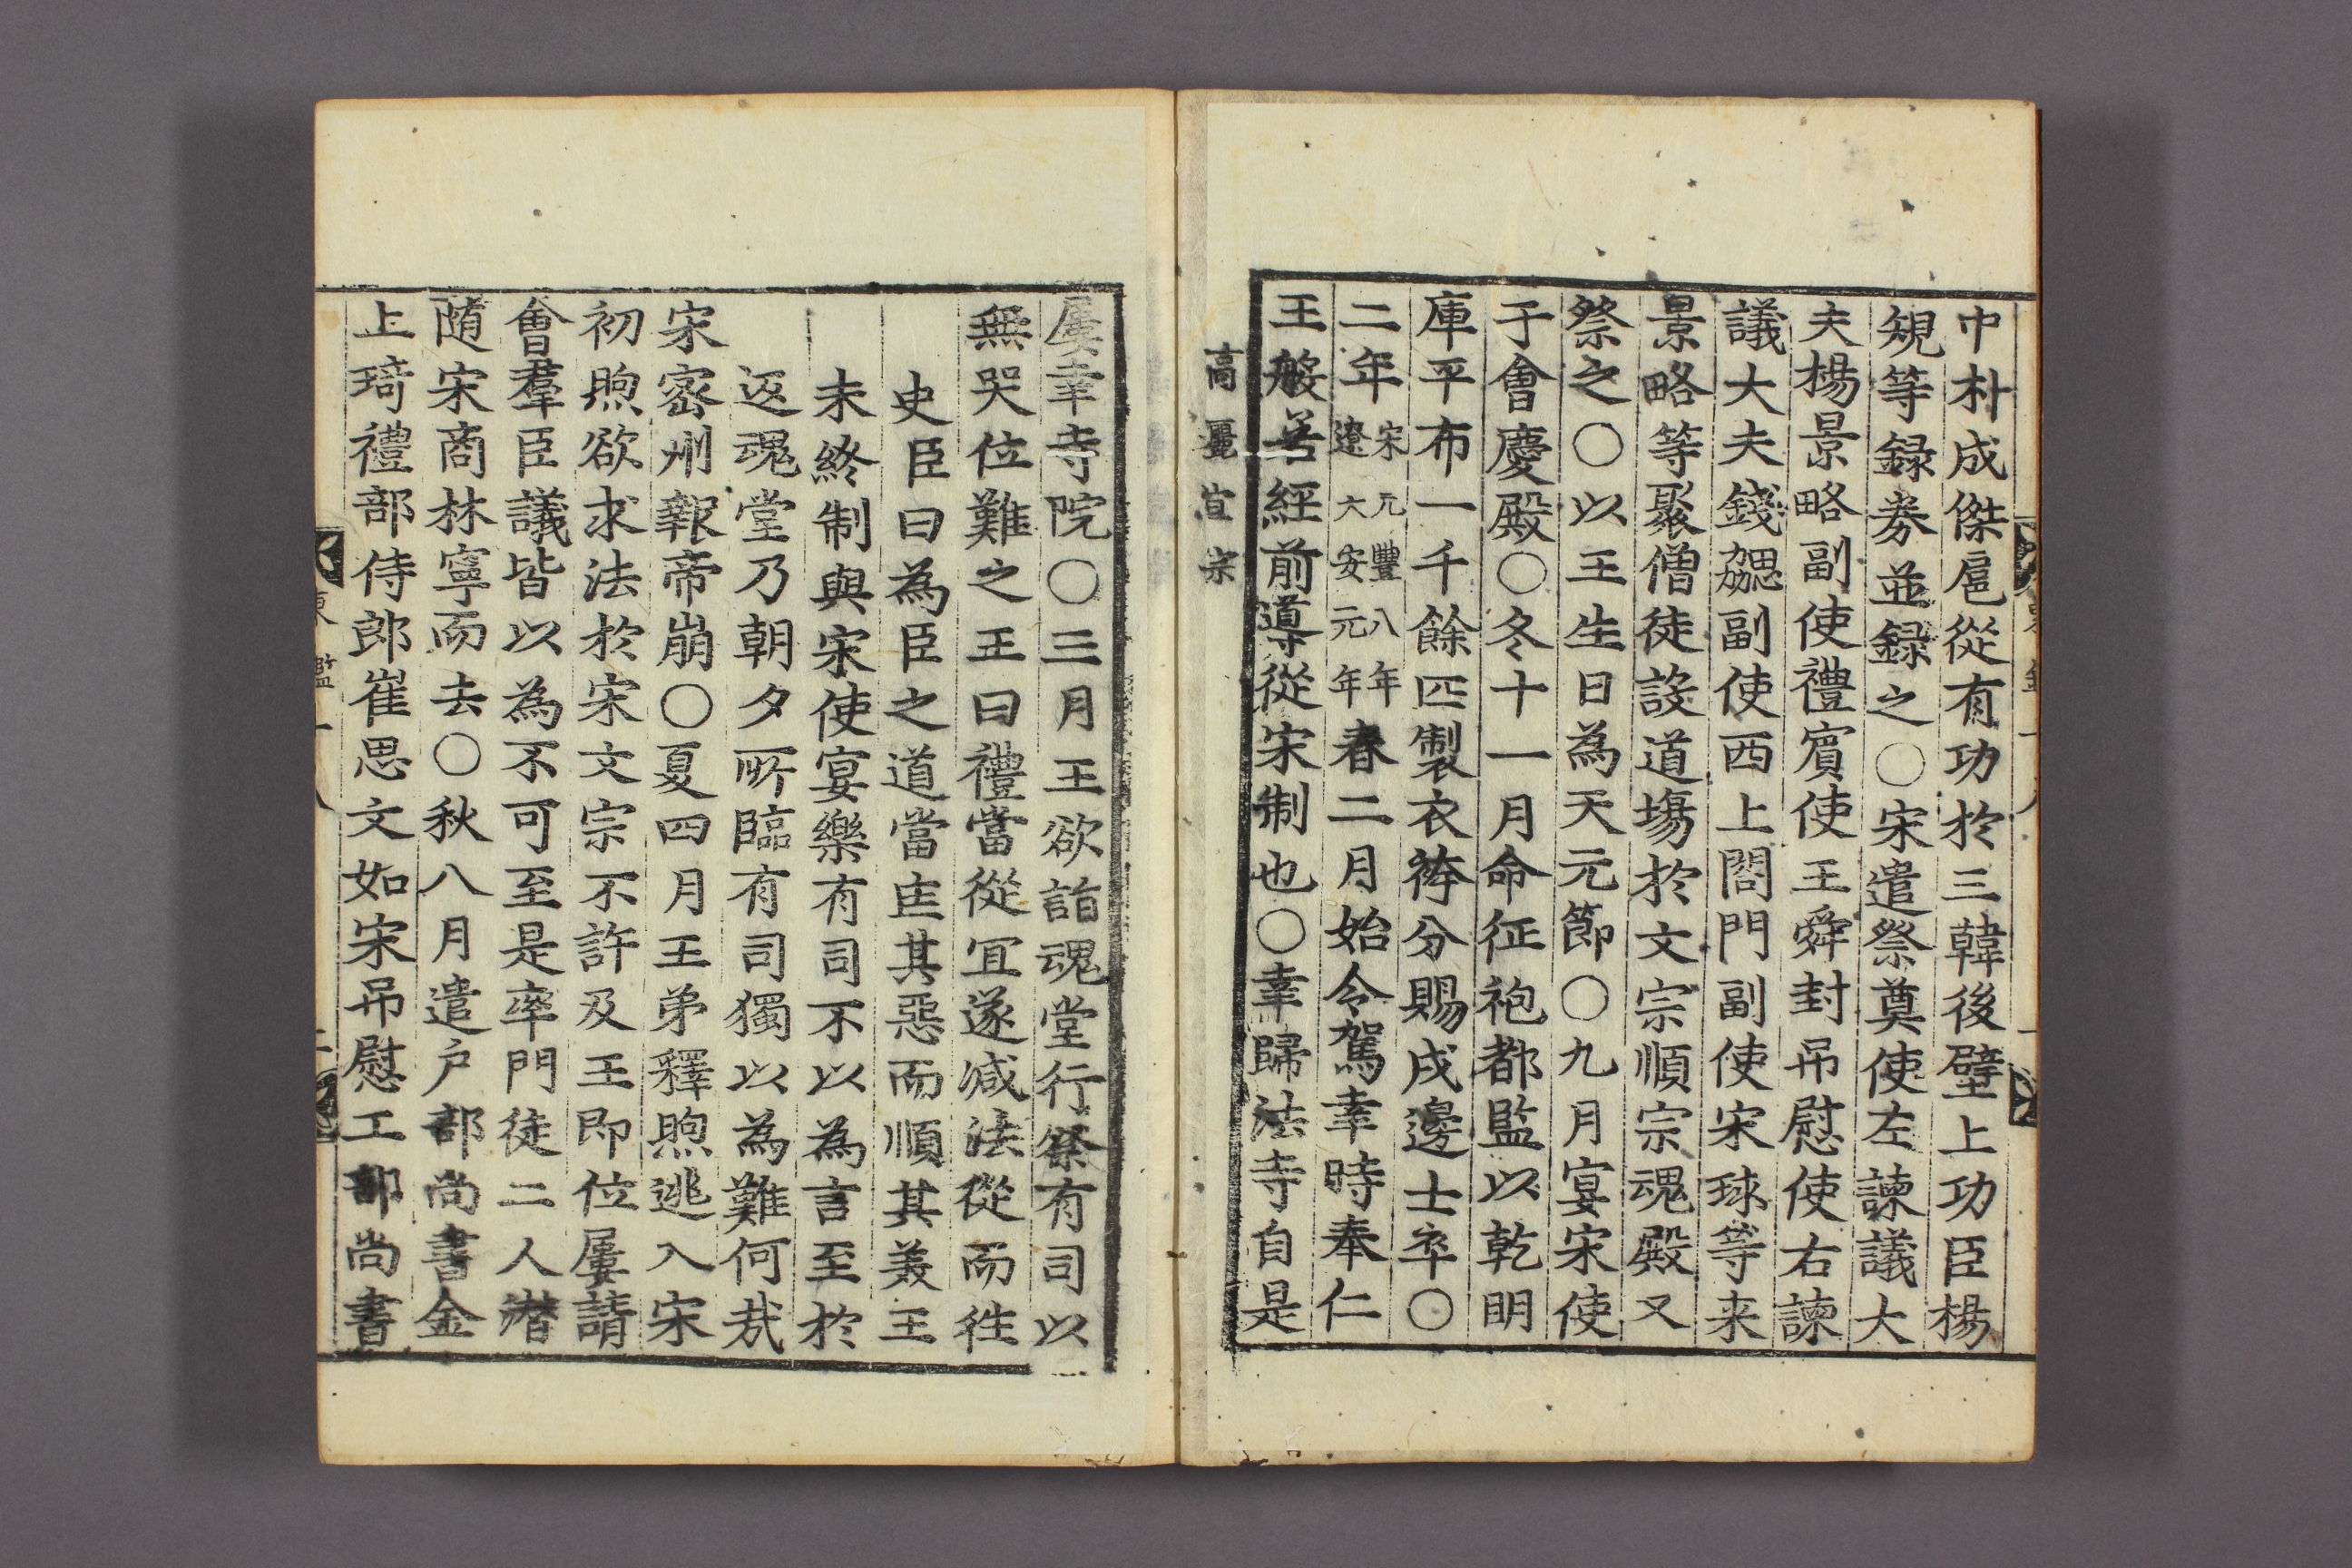 中朴成傑扈從有功於三韓後壁上功臣楊
規等録券並録之○宋遣祭奠使左諫議大
夫楊景略副使禮賓使王舜封吊慰使右諫
議大夫錢勰副使西上閤門副使宋球等来
景略等聚僧徒設道場於文宗順宗魂殿又
祭之○以王生日為天元節○九月宴宋使
于會慶殿○冬十一月命征袍都監以乾明
庫平布一千餘匹製衣袴分賜戍邊士卒○
二年宋元豐八年遼大安元年春二月始令駕幸時奉仁
王般若經前導從宋制也○幸歸法寺自是
高麗宣宗
屢幸寺院○三月王欲詣魂堂行祭有司以
無哭位難之王曰禮當從冝遂减法從而徃
史臣曰為臣之道當匡其惡而順其美王
未終制與宋使宴樂有司不以為言至於
返魂堂乃朝夕所臨有司獨以為難何㦲
宋宻州報帝崩○夏四月王弟釋煦逃入宋
初煦欲求法於宋文宗不許及王即位屢請
會羣臣議皆以為不可至是率門徒二人潜
随宋商林寧而去○秋八月遣户部尚書金
上琦禮部侍郎崔思文如宋吊慰工部尚書
東 鑑 十八